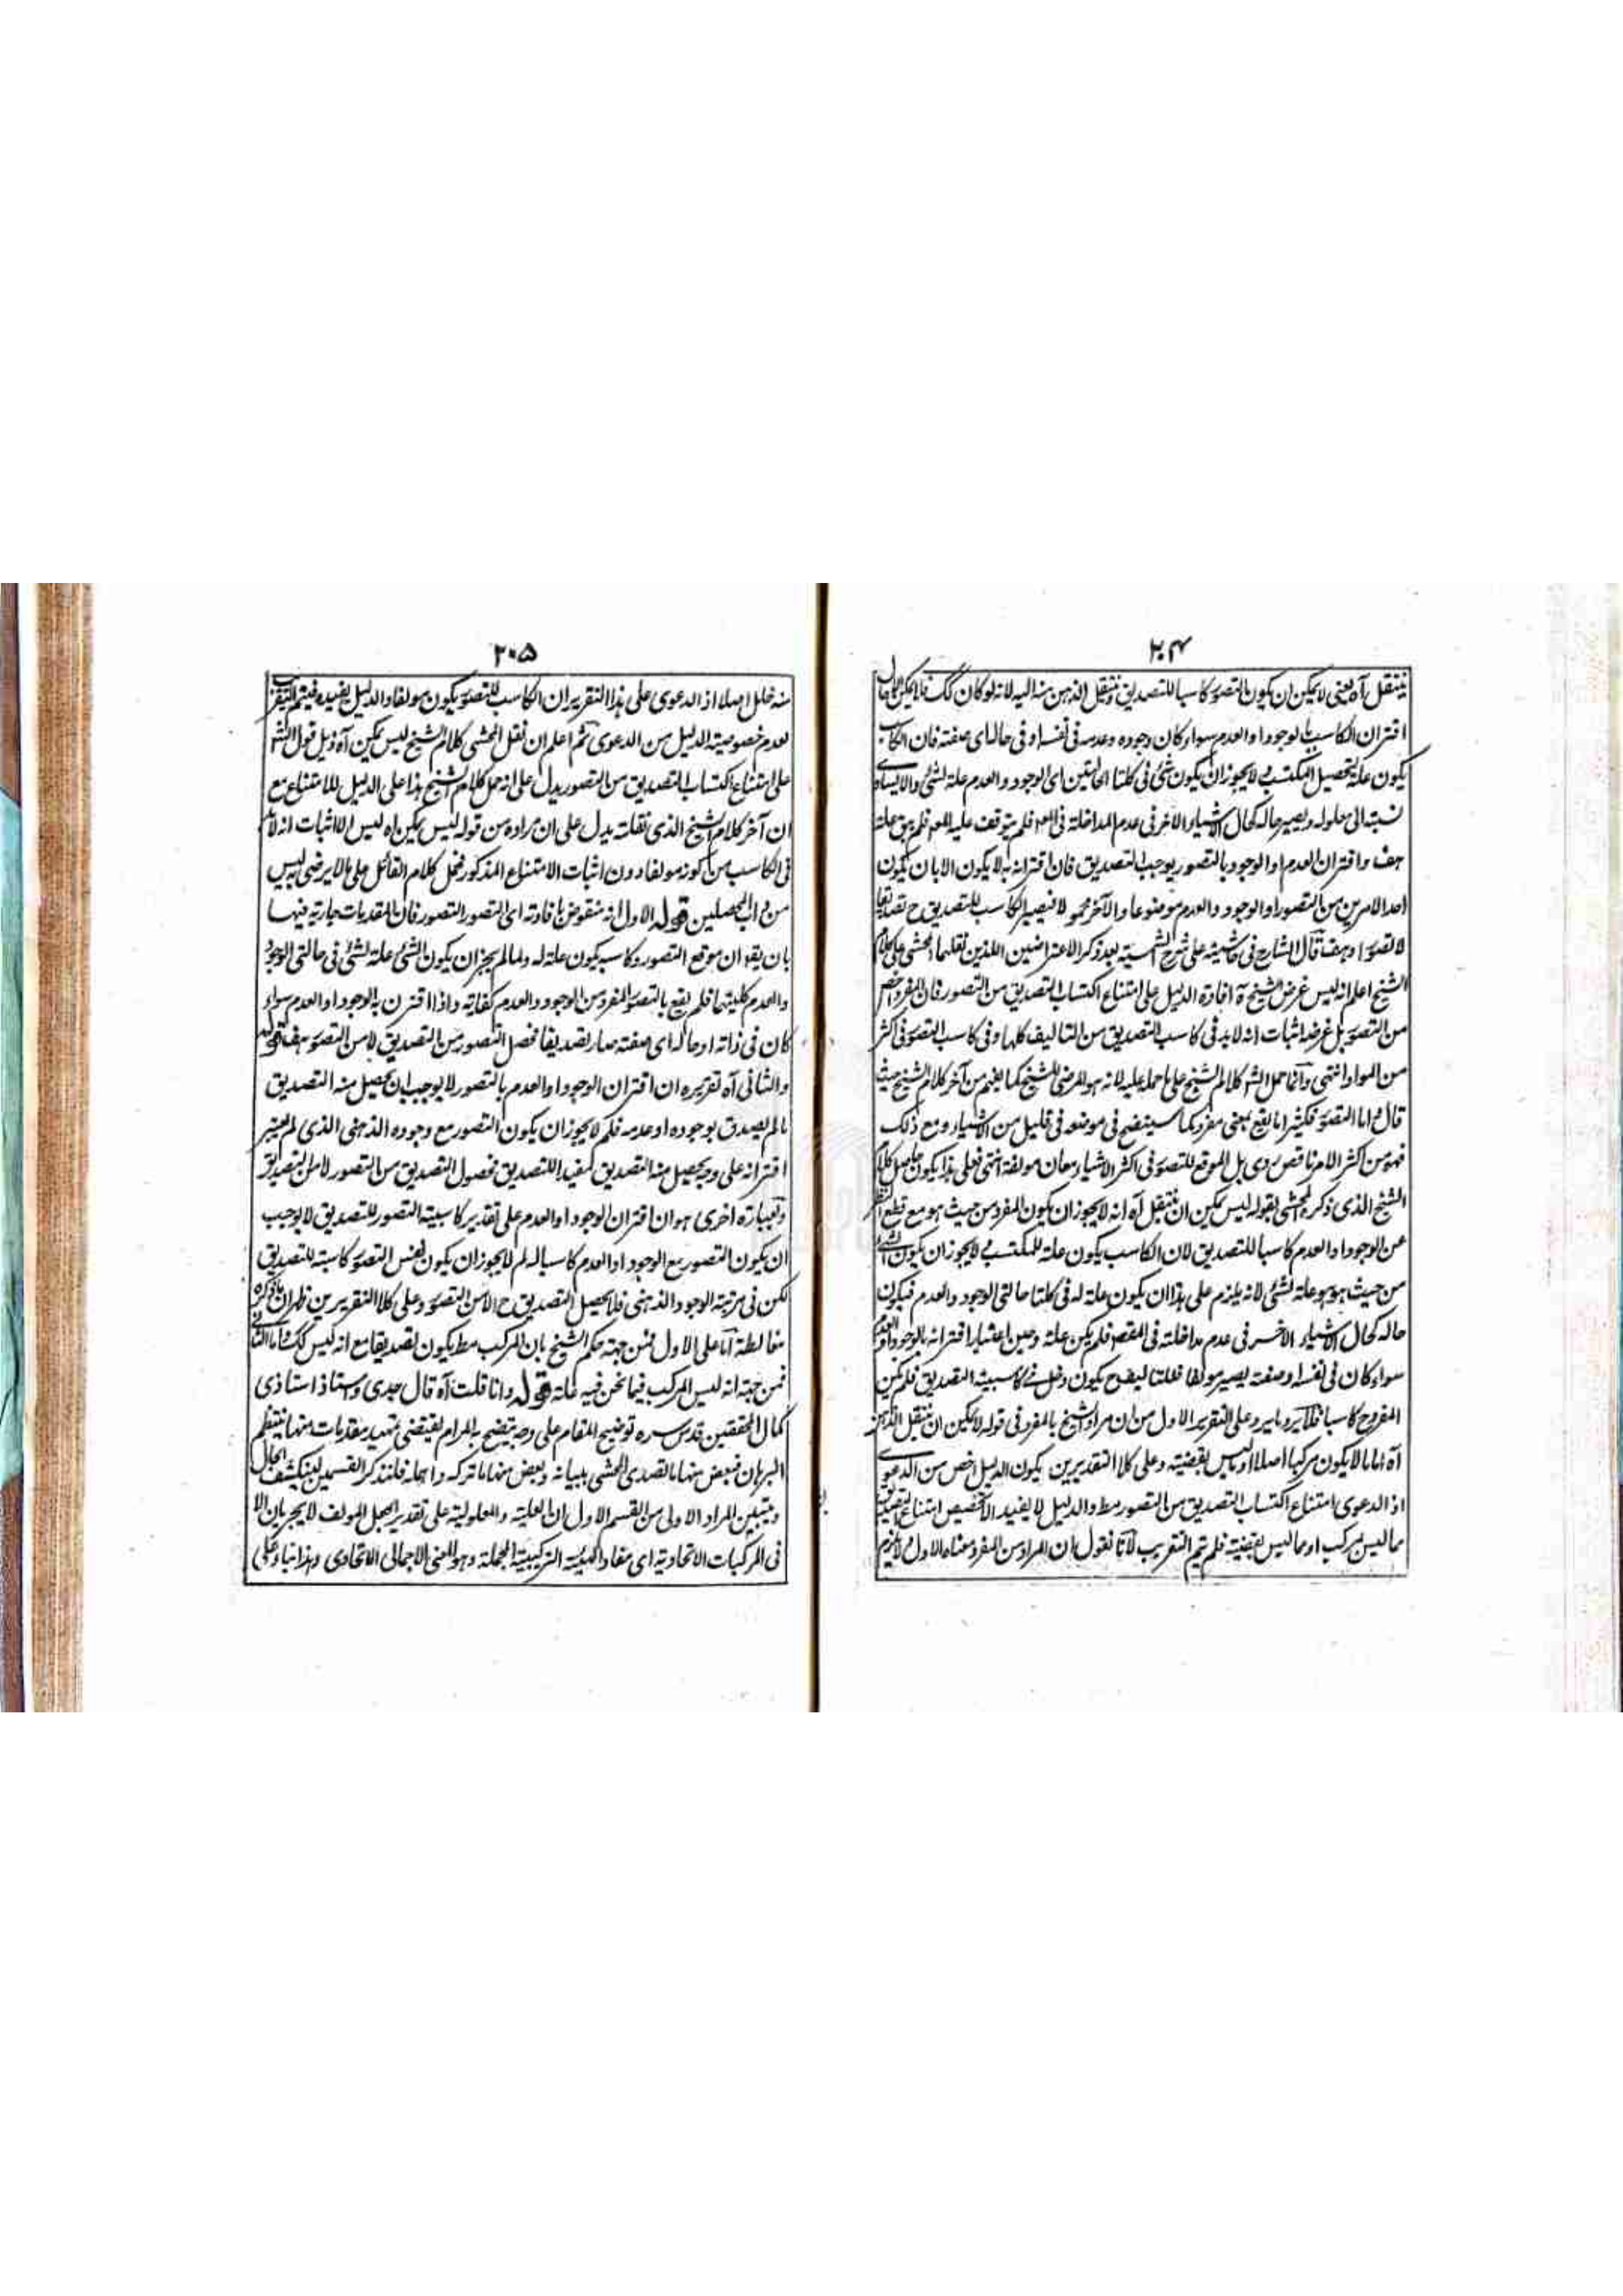 ۲۰۴
ينتقل آه يعنى لا يمكن ان يكون التصور كاسبا للتصديق فينتقل الذهن منه اليه لانه لو كان كك فاما يمكن
اقتران الكاسب بالوجود او العدم سواء كان وجوده وعدمه فى نفسه او فى حاله اى صفته فان الكاسب
يكون علة لتحصيل المكتسب ولا يجوز ان يكون شئ فى كلتا الحالتين اى الوجود والعدم علة لشئ والا يساوى
نسبته الى معلوله ويصير حاله كحال الاشياء الأخر فى عدم المداخلة فى العلة فلم يتوقف عليه المع فلم يبق علة
هف واقتران العدم او الوجود بالتصور يوجب التصديق فان اقترانه به لا يكون الا بان يكون
احد الامرين من التصور او الوجود والعدم موضوعا والآخر محمولا فيصير الكاسب للتصديق ح تصديقا
لا تصورا وهف قال الشارح فى حاشيته على شرح الشمسية بعد ذكر الاعتراضين اللذين نقلهما المحشى على كلام
الشيخ اعلم انه ليس غرض الشيخ افادة الدليل على امتناع اكتساب التصديق من التصور فان المفرد اخص
من التصور بل غرضه اثبات انه لا بد فى كاسب التصديق من التاليف كلها وفى كاسب التصور فى اكثر
من المواد انتهى وانما حمل الش كلام الشيخ على ما حمله عليه لانه هو المرضى للشيخ كما يفهم من آخر كلام الشيخ حيث
قال واما التصور فكثيرا ما يقع بمعنى مفرد كما سيتضح فى موضعه فى قليل من الاشياء ومع ذلك
فهو من اكثر الامر ناقص ردى بل الموقع للتصور فى اكثر الاشياء معان مولفة انتهى فعلى هذا يكون حاصل كلام
الشيخ الذى ذكره المحشى بقوله ليس يمكن ان ينتقل آه انه لا يجوز ان يكون المفرد من حيث هو مع قطع النظر
عن الوجود او العدم كاسبا للتصديق لان الكاسب يكون علة للمكتسب ولا يجوز ان يكون الشئ
من حيث هو هو علة لشئ لانه يلزم على هذا ان يكون علة له فى كلتا حالتى الوجود والعدم فيكون
حاله كحال الاشياء الأخر فى عدم مداخلته فى المقصد فلم يكن علة وحين اعتبار اقترانه بالوجود او العدم
سواء كان فى نفسه او صفته يصير مولفا فعلتا ليفه يكون دخل فى كاسبية التصديق فلم يكن
المفرد ح كاسبا فلا يرد ما يرد وعلى التقرير الاول من ان مراد الشيخ بالمفرد فى قوله لا يمكن ان ينتقل الذهن
آه اما ما لا يكون مركبا اصلا او ما ليس بقضية وعلى كلا التقديرين يكون الدليل اخص من الدعوى
اذ الدعوى امتناع اكتساب التصديق من التصور مط والدليل لا يفيد الا تخصيص امتناع التصديق
مما ليس بمركب او مما ليس بقضية فلم يتم التقريب لانا نقول ان المراد من المفرد معناه الاول ولا يلزم
۲۰۵
منه خلل اصلا اذ الدعوى على هذا التقرير ان الكاسب للتصور يكون مولفا والدليل يفيده فيتم التقريب
لعدم خصوصية الدليل من الدعوى ثم اعلم ان نقل المحشى كلام الشيخ ليس يمكن آه ذيل قول الش
على امتناع اكتساب التصديق من التصور يدل على انه حمل كلام الشيخ هذا على الدليل للامتناع مع
ان آخر كلام الشيخ الذى نقلته يدل على ان مراده من قوله ليس يمكن اه ليس الا اثبات انه لا بد
فى الكاسب من كونه مولفا دون اثبات الامتناع المذكور فحمل كلام القائل على ما لا يرضى به ليس
من داب المحصلين قوله الاول انه منقوض بافادته اى التصور التصور فان المقدمات جارية فيها
بان يقو ان موقع التصور وكاسبه يكون علة له ولما لم يجز ان يكون الشئ علة لشئ فى حالتى الوجود
والعدم كليتهما فلم يقع بالتصور المفرد من الوجود والعدم كفاية واذا اقترن به الوجود او العدم سواء
كان فى ذاته او حاله اى صفته صار تصديقا فحصل التصور من التصديق لا من التصور هف قوله
والثانى آه تقريره ان اقتران الوجود او العدم بالتصور لا يوجب ان يحصل منه التصديق
ما لم يصدق بوجوده او عدمه فلم لا يجوز ان يكون التصور مع وجوده الذهنى الذى لم يعتبر
اقترانه على وجه يحصل منه التصديق كمفيد للتصديق فحصول التصديق من التصور لا من التصديق
وبعبارة اخرى هو ان اقتران الوجود او العدم على تقدير كاسبية التصور للتصديق لا يوجب
ان يكون التصور مع الوجود او العدم كاسبا له لم لا يجوز ان يكون نفس التصور كاسبة للتصديق
لكن فى مرتبة الوجود الذهنى فلا يحصل التصديق ح الا من التصور وعلى كلا التقريرين ظهران ما ذكره
مغالطة اما على الاول فمن جهة حكم الشيخ بان المركب مط يكون تصديقا مع انه ليس كك واما الثانى
فمن جهة انه ليس المركب فيما نحن فيه علة قوله وانا قلت آه قال جدى واستاذ استاذى
كمال المحققين قدس سره توضيح المقام على وجه يتضح به المرام يقتضى تمهيد مقدمات منها ينتظم
البرهان فبعض منها ما تصدى المحشى ببيانه وبعض منها ما تركه واهمله فلنذكر القسمين لينكشف الحال
ويتبين المراد الاولى من القسم الاول ان العلية والمعلولية على تقدير الجعل المولف لا يجريان الا
فى المركبات الاتحادية اى مفاد الهيئة التركيبية الحملية وهو المعنى الاجمالى الاتحادى وهذا بناء على